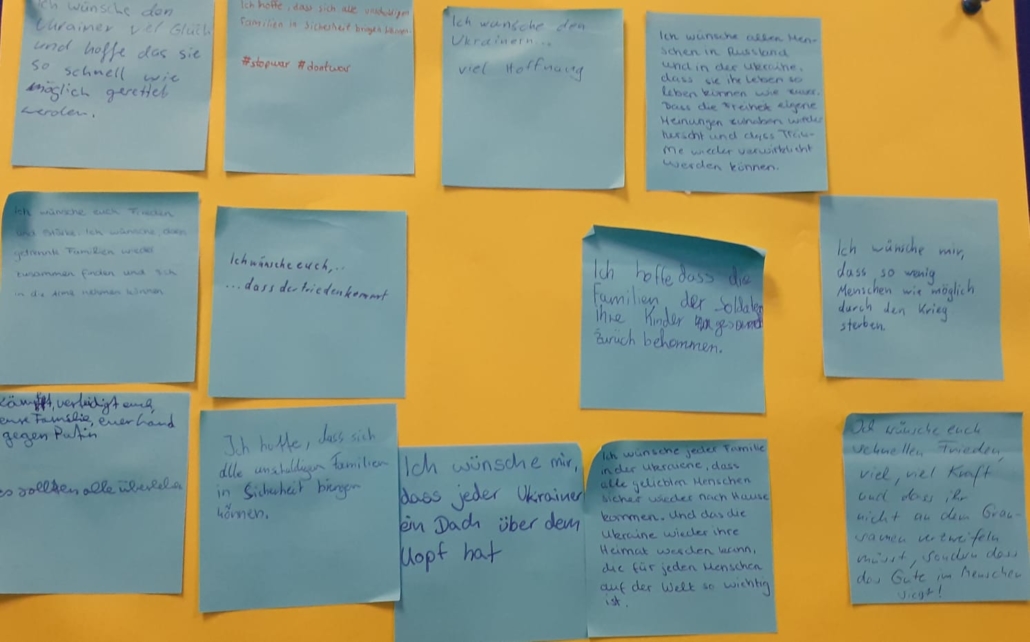 Ich wünsche den
Ukrainer viel Glück
und hoffe das sie
so schnell wie
möglich gerettet
werden.
Ich hoffe, dass sich alle unschuldigen
Familien in Sicherheit
#stopwar #dontwar
Ich wünsche den
Ukrainern...
viel Hoffnung
Ich wünsche allen Men-
schen in Russland
und in der Ukraine,
dass sie ihr Leben so
leben können wie zuvor.
Dass die Freiheit eigene
Meinungen zuhaben wieder
herscht und dass Träu-
me wieder verwirklicht
werden können.
Ich wünsche euch Frieden
und Stärke. Ich wünsche, dass
getrennte Familien wieder
zusammen finden und sich
in die Arme nehmen können
Ich wünsche euch,..
...dass der Frieden kommt
Ich hoffe dass die
Familien der Soldaten
ihre Kinder
zurück bekommen.
Ich wünsche mir,
dass so wenig
Menschen wie möglich
durch den Krieg
sterben.
kämpft, verteidigt euch,
eure Familie, euer Land
gegen Putin
es sollten alle überleben
Ich hoffe, dass sich
alle unschuldigen Familien
in Sicherheit biergen
können.
Ich wünsche mir,
dass jeder Ukrainer
ein Dach über dem
Kopf hat
Ich wünsche jeder Familie
in der Ukraiene, dass
alle geliebten Menschen
sicher wieder nach Hause
kommen. Und das die
Ukraine wieder ihre
Heimat werden kann,
die für jeden Menschen
auf der Welt so wichtig
ist.
Ich wünsche euch
schnellen Frieden,
viel, viel Kraft
und dass ihr
nicht an dem Grau-
samen verzweifeln
müsst, sondern dass
das Gute im Menschen
siegt!